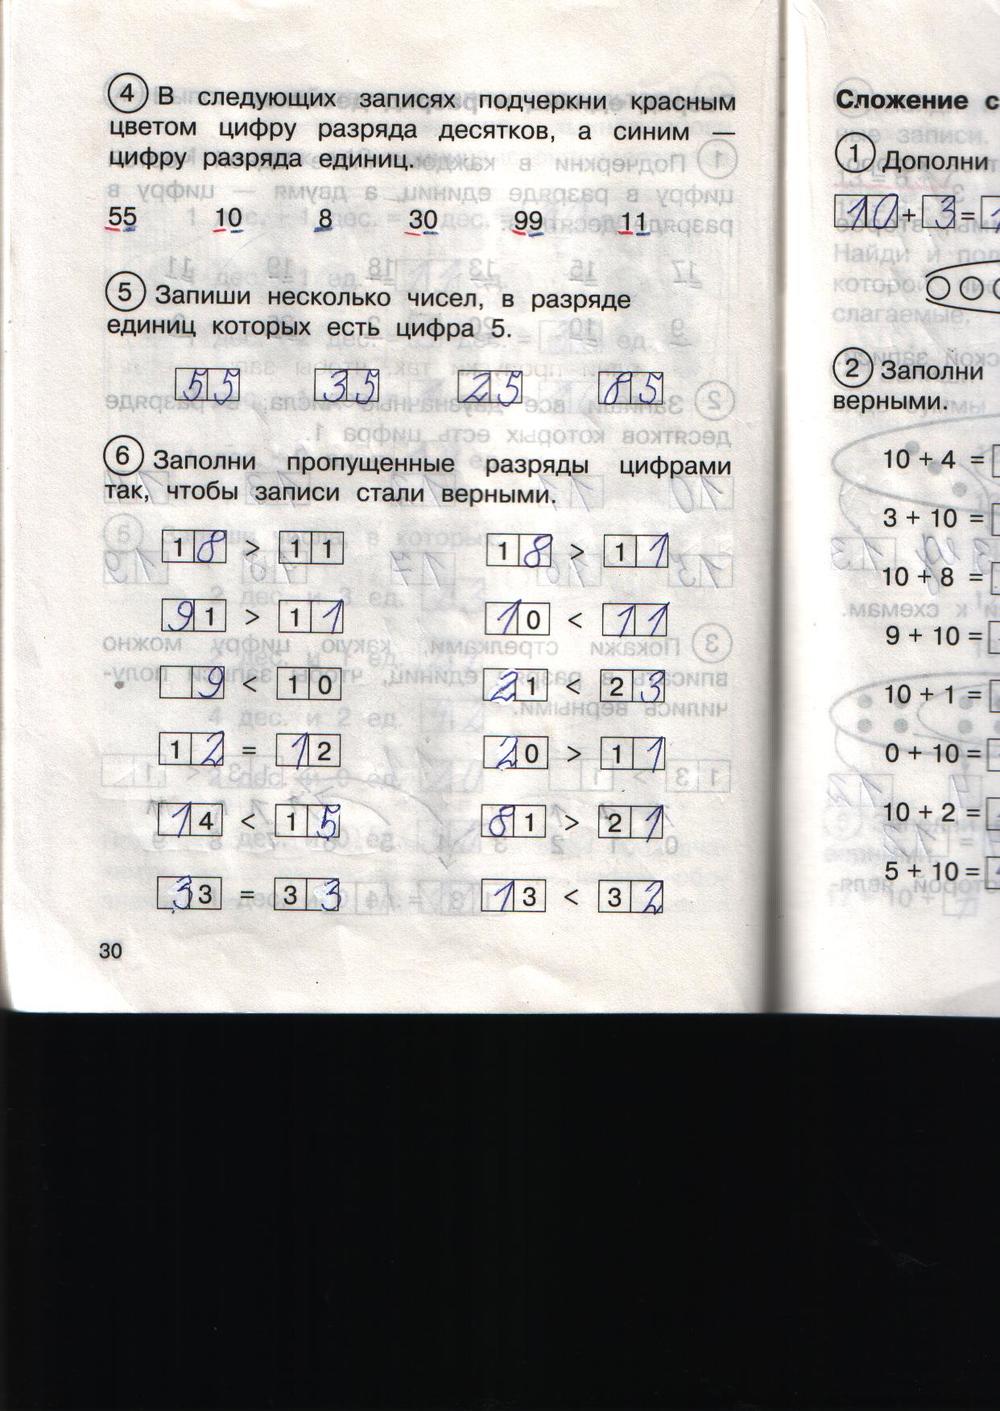 4 В следующих записях подчеркни красным
цветом цифру разряда десятков, а синим —
цифру разряда единиц.
55 10 8 30 99 11
5 Запиши несколько чисел, в разряде
единиц которых есть цифра 5.
55 35 25 85
6 Заполни пропущенные разряды цифрами
так, чтобы записи стали верными.
18 > 11 18 > 11
91 > 11 10 < 11
9 < 10 21 < 23
12 = 12 20 > 11
14 < 15 81 > 21
33 = 33 13 < 32
30
Сложение с
1 Дополни
10 + 3 =
2 Заполни
верными.
10 + 4 =
3 + 10 =
10 + 8 =
9 + 10 =
10 + 1 =
0 + 10 =
10 + 2 =
5 + 10 =